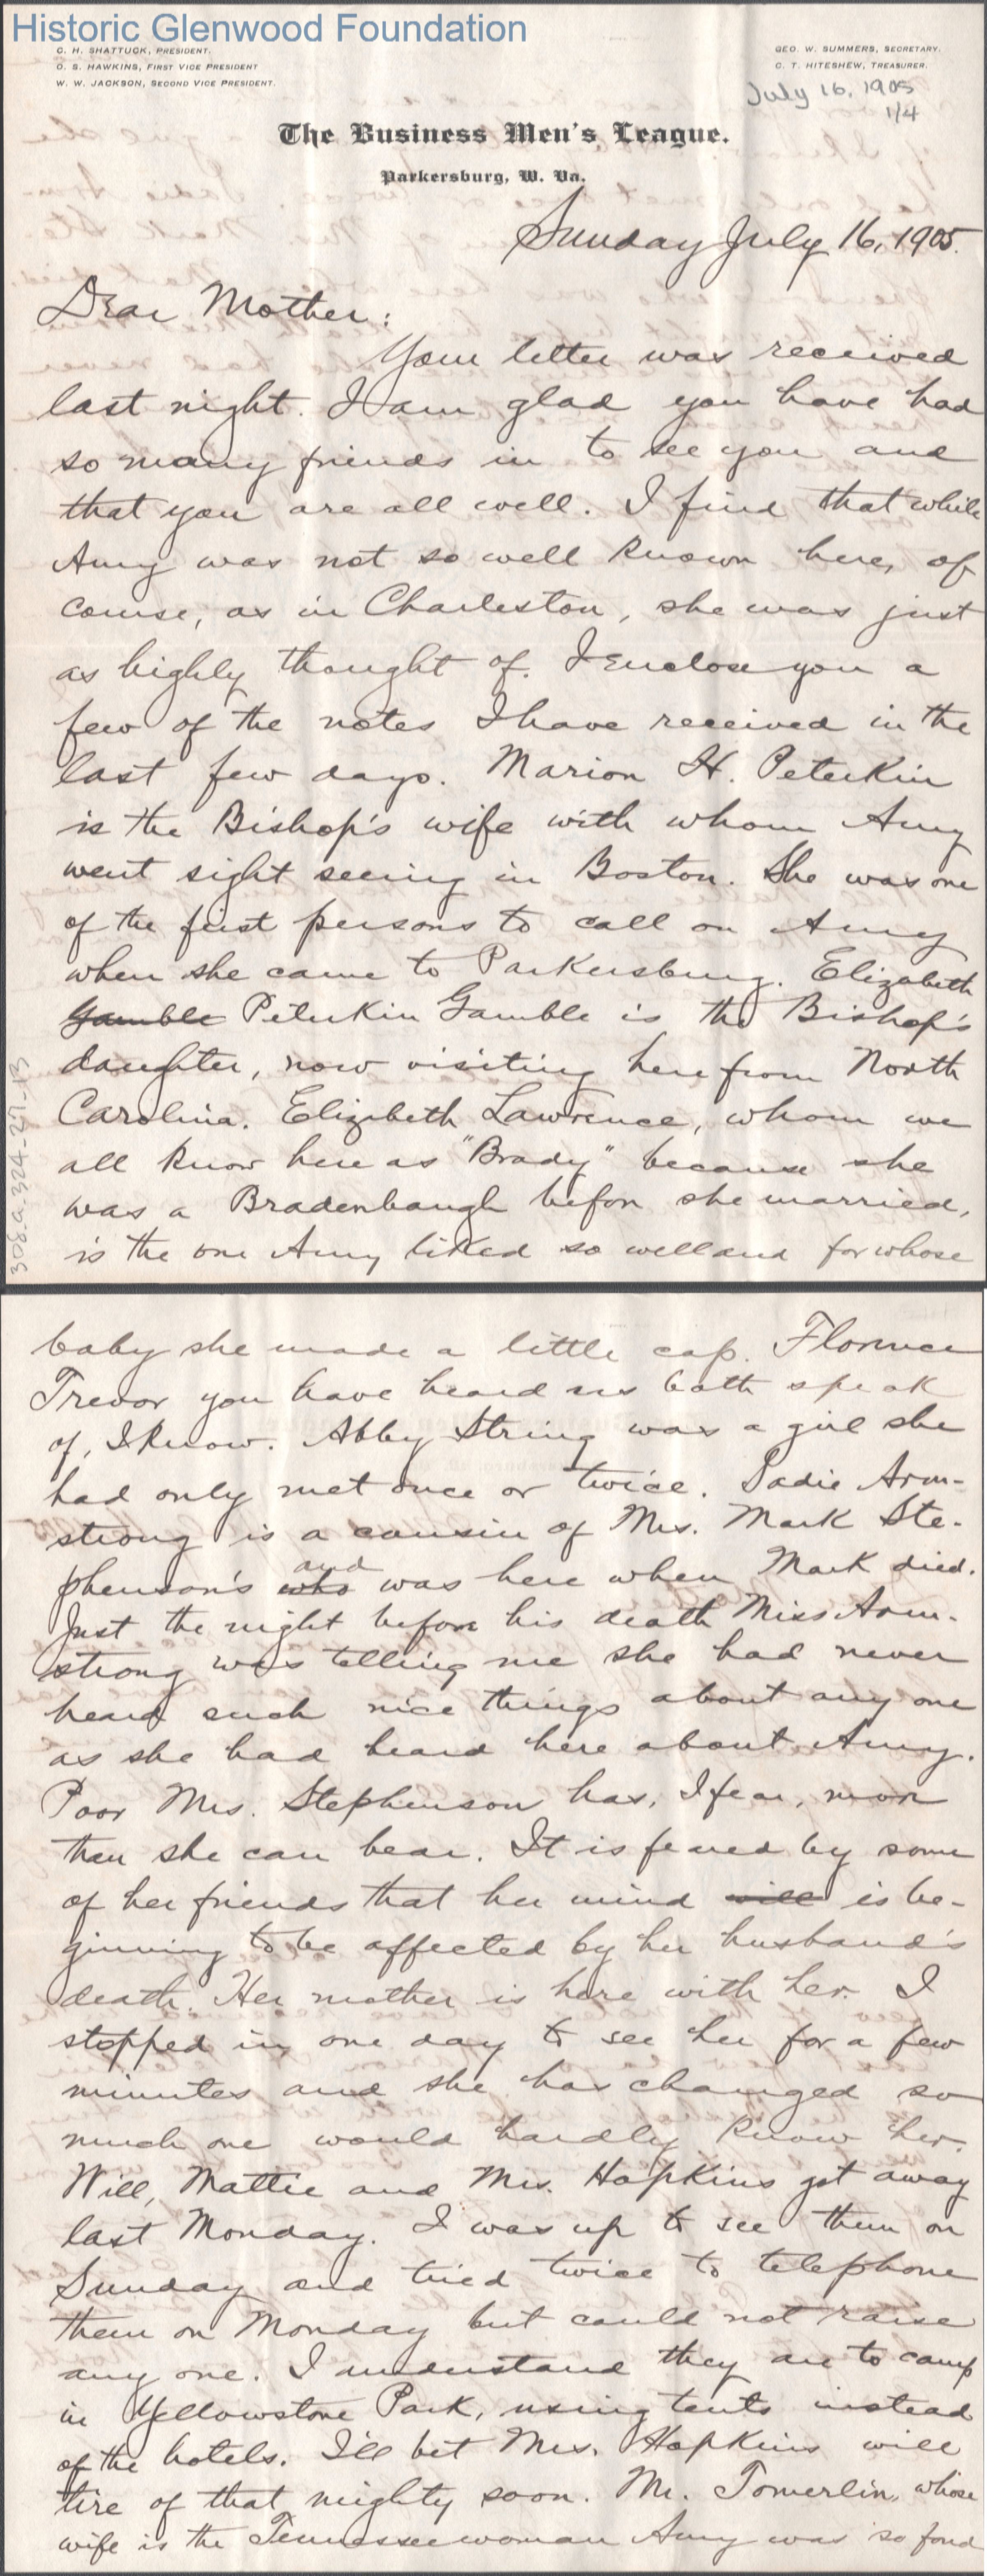 Historic Glenwood Foundation
C. H. SHATTUCK, PRESIDENT.
O. S. HAWKINS, FIRST VICE PRESIDENT
W. W. JACKSON, SECOND VICE PRESIDENT.
GEO. W. SUMMERS, SECRETARY.
C. T. HITESHEW, TREASURER.
July 16, 1905
1/4
The Business Men's League.
Parkersburg, W. Va.
Sunday July 16, 1905.
Dear Mother:
Your letter was received
last night. I am glad you have had
so many friends in to see you and
that you are all well. I find that while
Amy was not so well known here, of
course, as in Charleston, she was just
as highly thought of. I enclose you a
few of the notes I have received in the
last few days. Marion H. Peterkin
is the Bishop's wife with whom Amy
went sight seeing in Boston. She was one
of the first persons to call on Amy
when she came to Parkersburg. Elizabeth
Gamble Peterkin Gamble is the Bishop's
daughter, now visiting here from North
Carolina. Elizabeth Lawrence, whom we
all know here as "Brady" because she
was a Bradenbaugh before she married,
is the one Amy liked so well and for whose
baby she made a little cap. Florence
Trevor you have heard us both speak
of, I know. Abby String was a girl she
had only met once or twice. Sadie Arm-
strong is a cousin of Mrs. Mark Ste-
phenson's who and was here when Mark died.
Just the night before his death Miss Arm-
strong was telling me she had never
heard such nice things about any one
as she had heard here about Amy.
Poor Mrs. Stephenson has, I fear, more
than she can bear. It is feared by some
of her friends that her mind will is be-
ginning to be affected by her husband's
death. Her mother is here with her. I
stopped in one day to see her for a few
minutes and she has changed so
much one would hardly know her.
Will, Mattie and Mrs. Hopkins got away
last Monday. I was up to see them on
Sunday and tried twice to telephone
them on Monday but could not raise
any one. I understand they are to camp
in Yellowstone Park, using tents instead
of the hotels. I'll bet Mrs. Hopkins will
tire of that mighty soon. Mr. Tomerlin, whose
wife is the Tennessee woman Amy was so fond